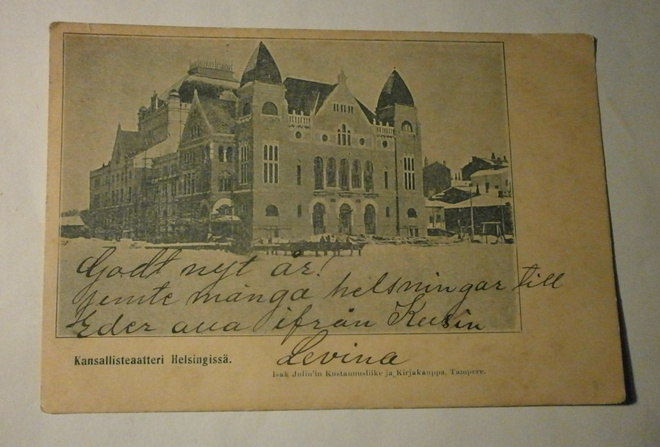 Godt nytt år!
jemte många helsningar till
Eder alla ifrån Kusin
Levina
Kansallisteaatteri Helsingissä.
Isak Julin'in Kustannusliike ja Kirjakauppa, Tampere.